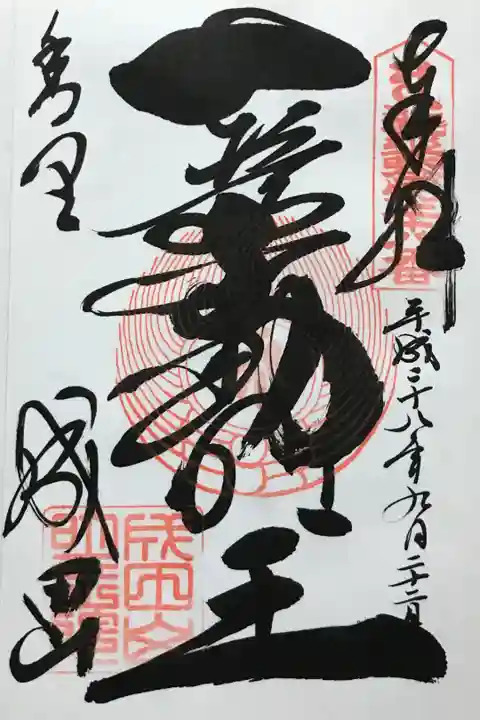 奉拝
平成二十八年九月二十二日
不動明王
香里
成田
成田山